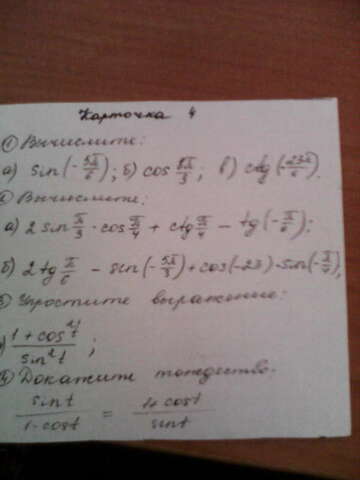 Карточка 4
① Вычислите:
а) sin(-5π/6); б) cos 8π/3; в) ctg(-23π/6).
② Вычислите:
а) 2 sin π/3 · cos π/4 + ctg π/4 - tg(-π/6);
б) 2 tg π/6 - sin(-5π/3) + cos(-2π) · sin(-π/4);
③ Упростите выражение:
) (1 + cos²t)/(sin²t);
④ Докажите тождество.
sin t/(1 - cos t) = (1 + cos t)/sin t